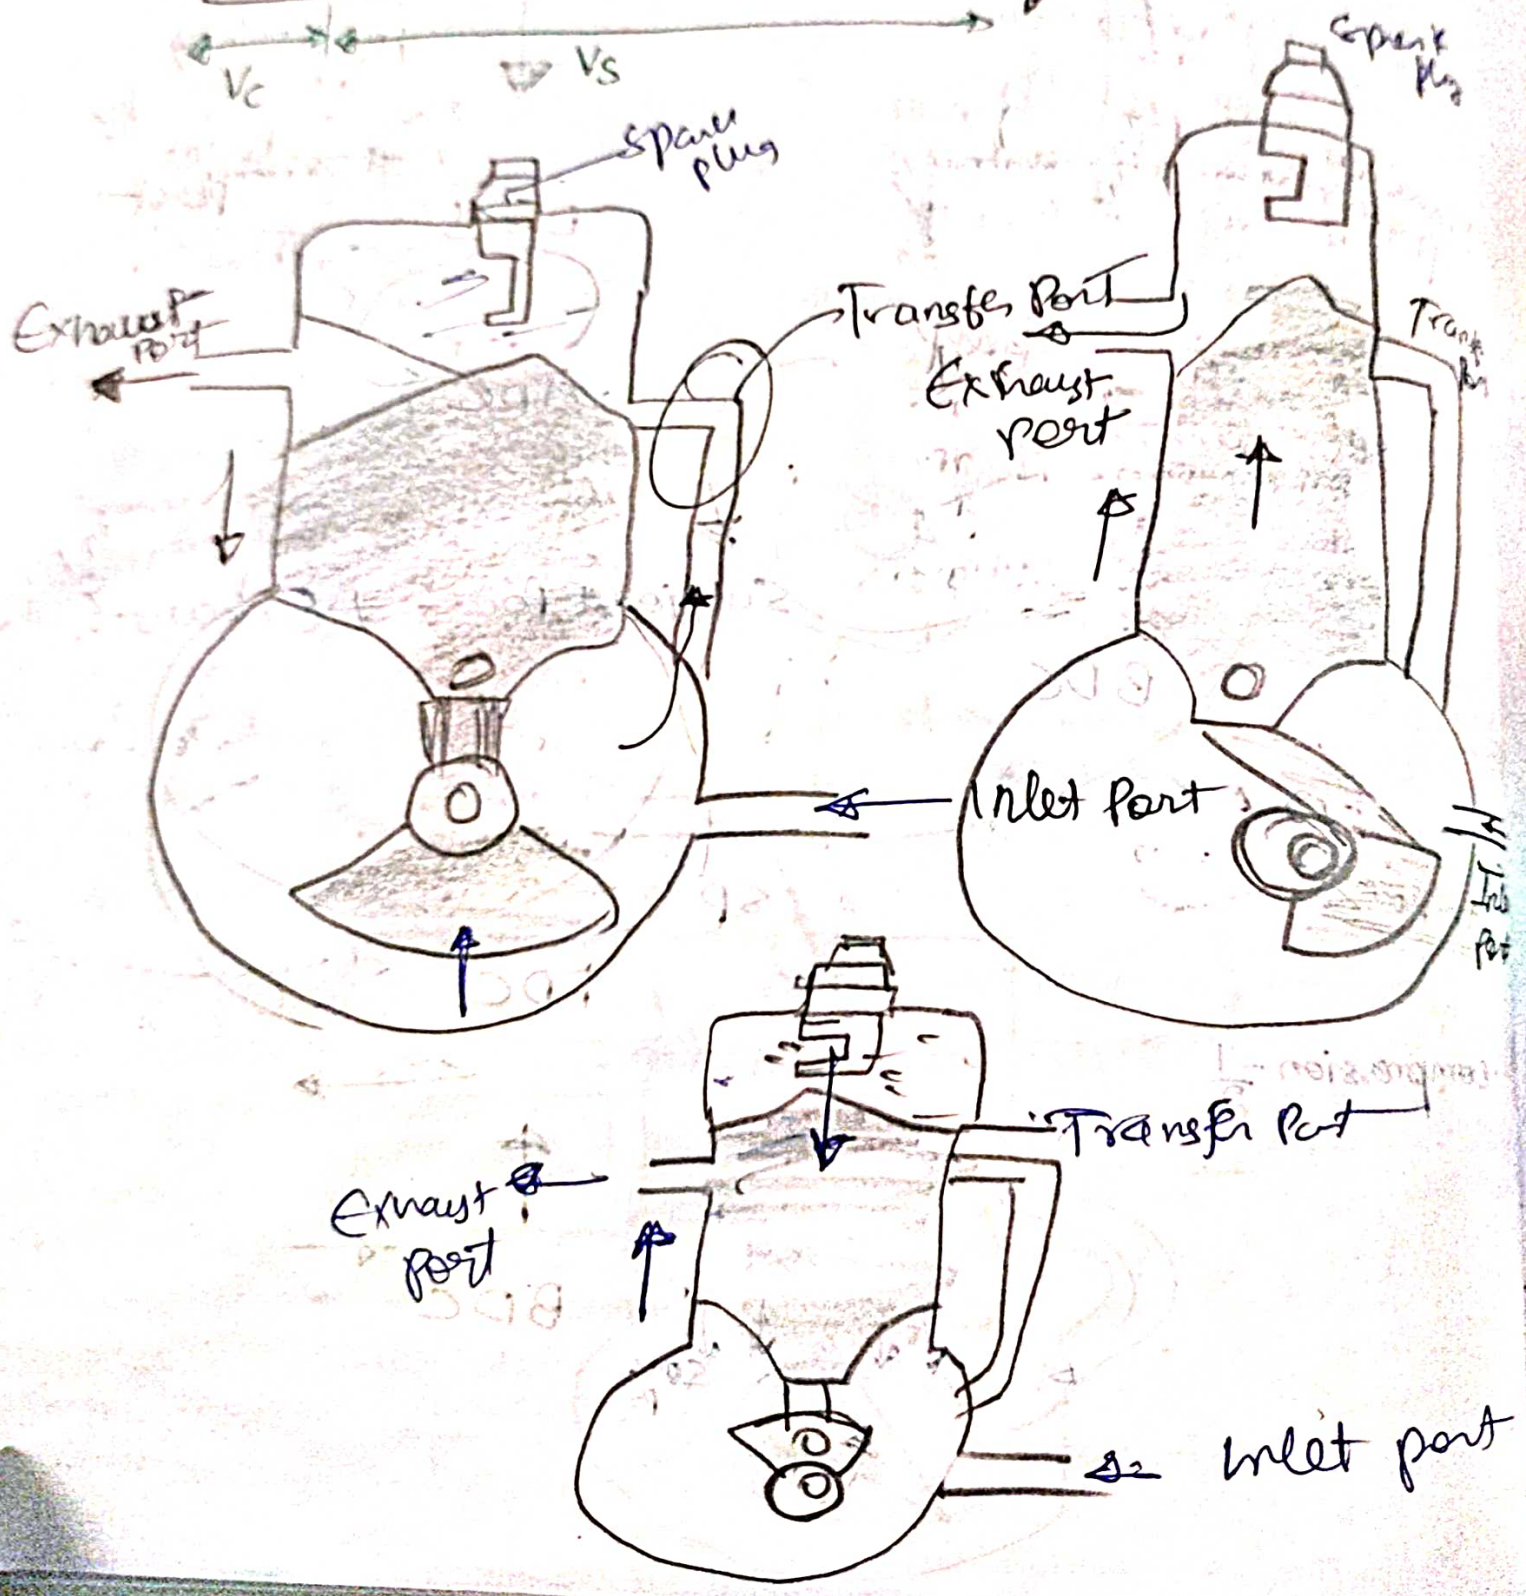 Vc
Vs
Spark
plug
Spark
plug
Exhaust
port
Transfer Port
Exhaust
port
Inlet Port
Transfer Port
Exhaust
port
Inlet port